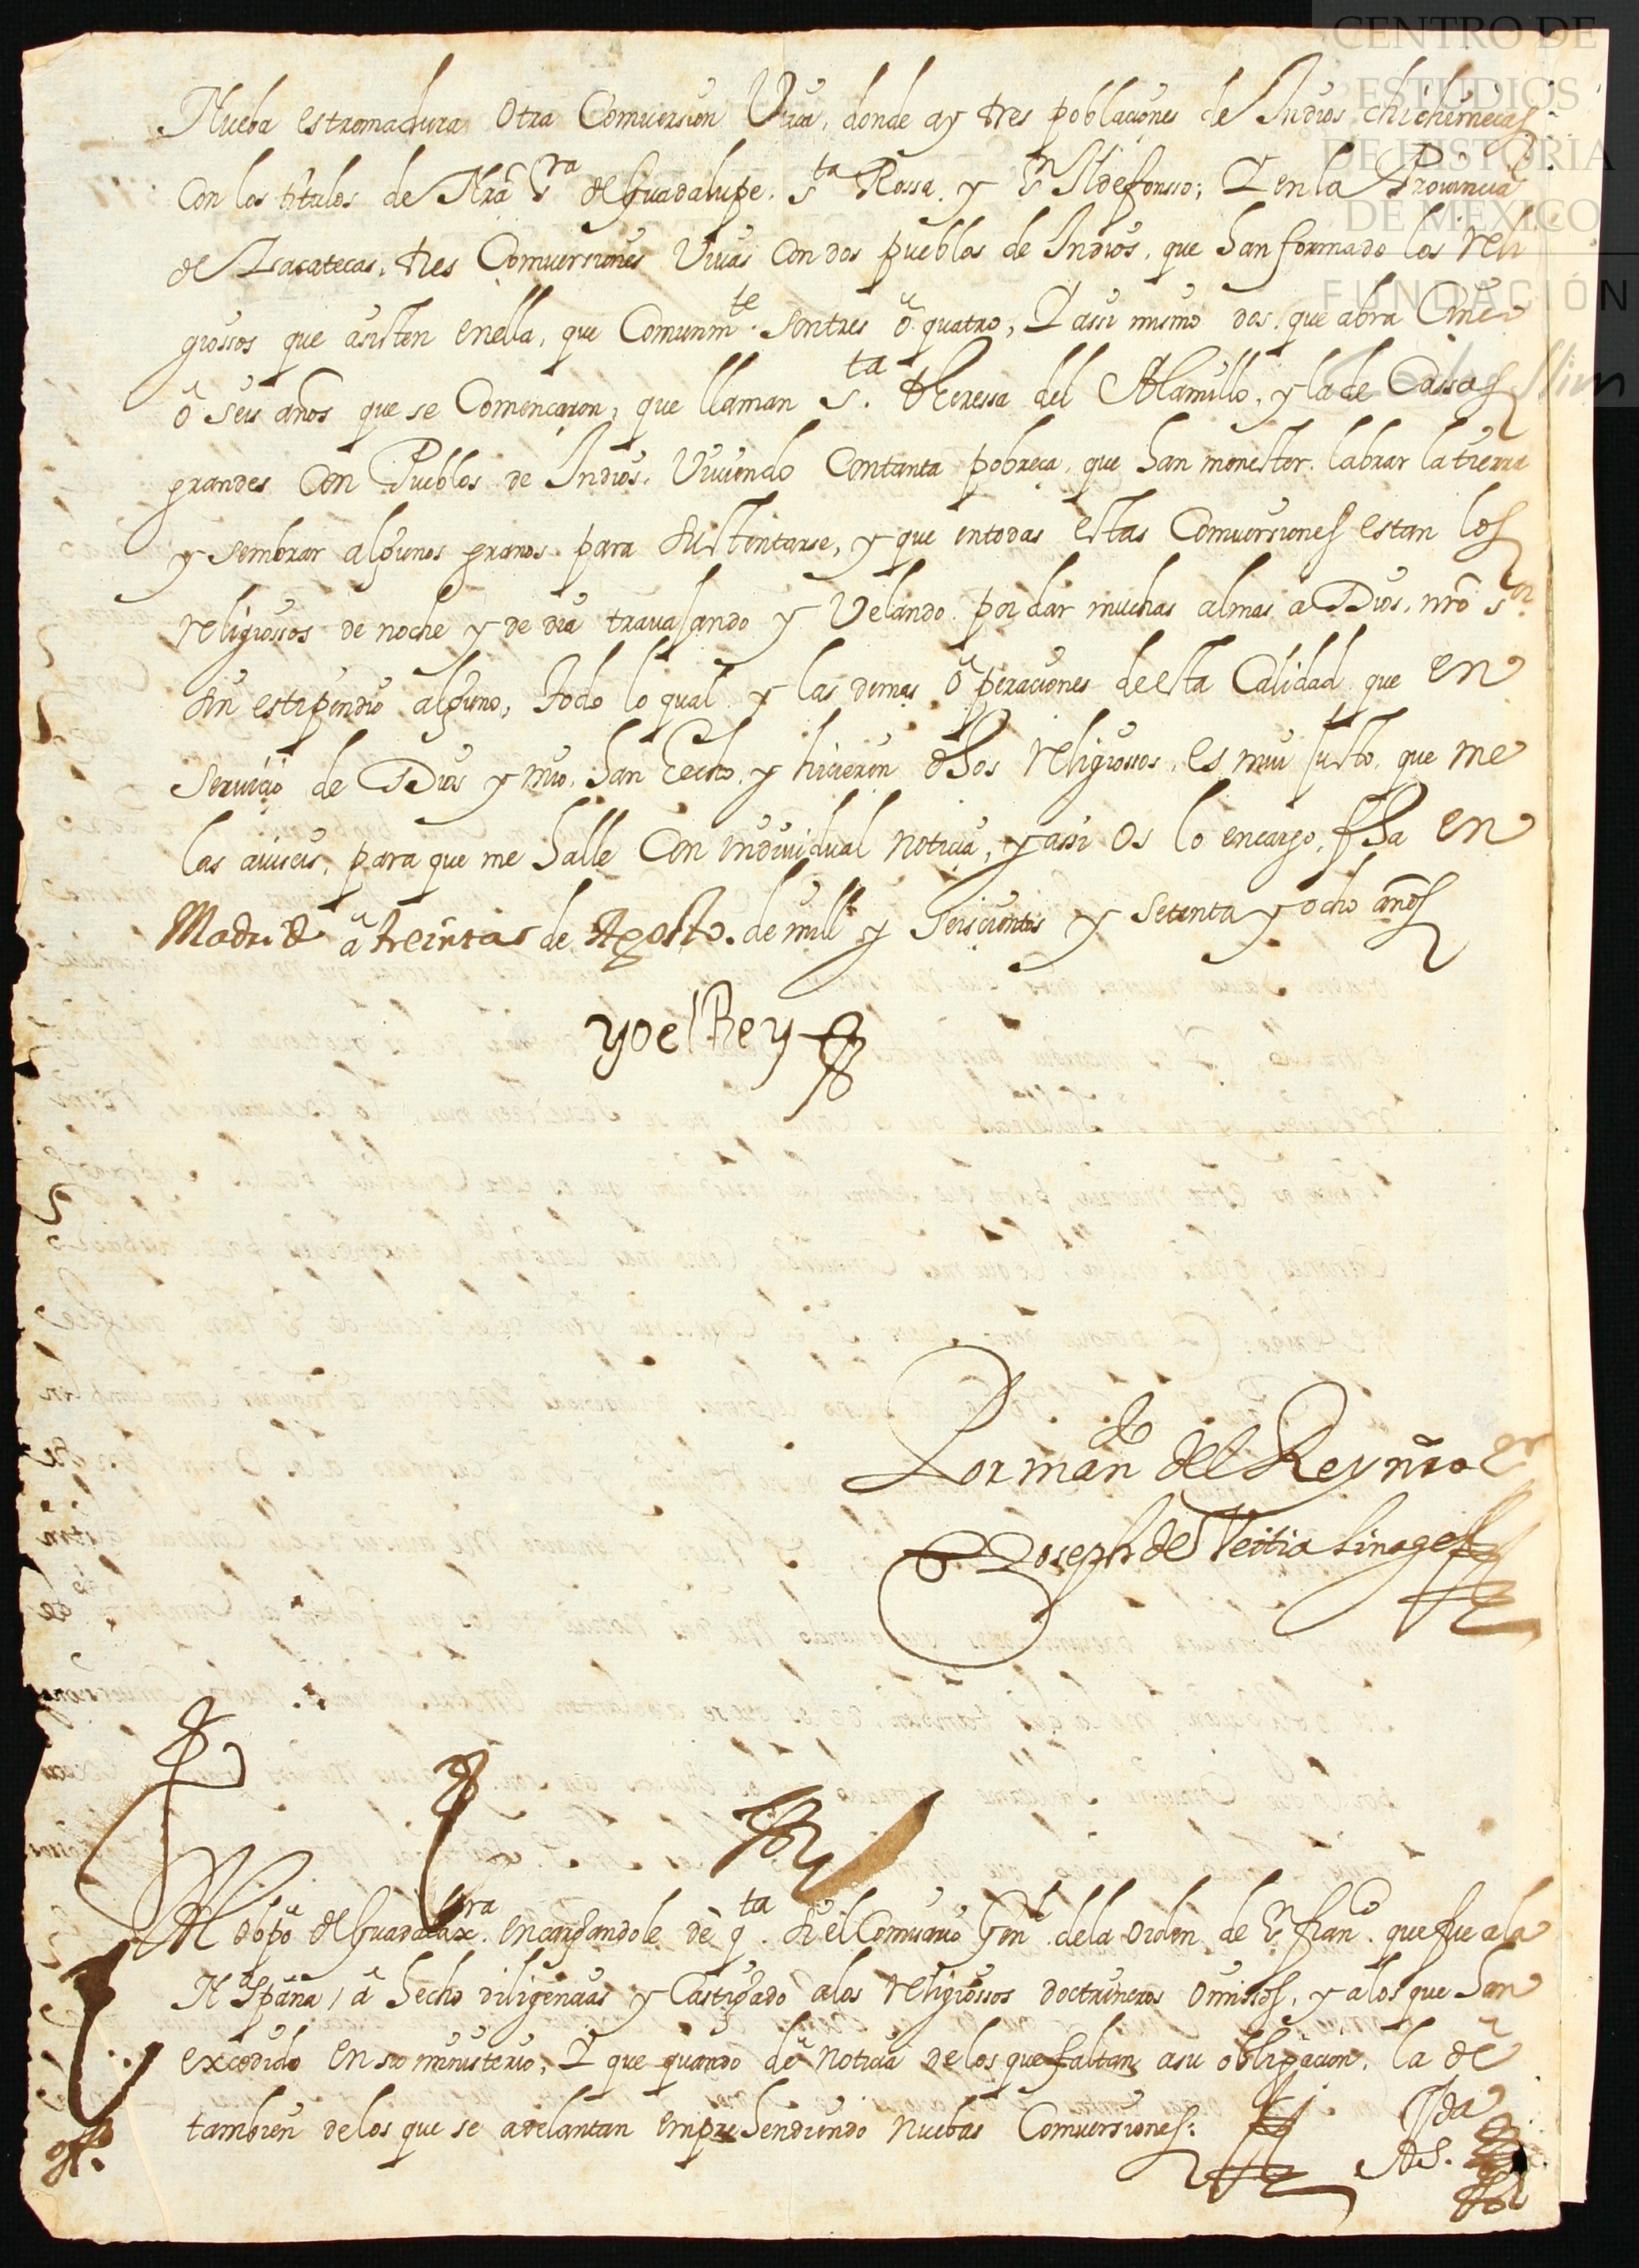 CENTRO DE
ESTUDIOS
DE HISTORIA
DE MEXICO
FUNDACIÓN
Carlos Slim
Nueba estremadura otra Comuersion Viua, donde ay tres poblaciones de Indios chichimecas
Con los titulos de Nrã Sra de Guadalupe, Sta Rossa, y Sn Ildefonsso; Y en la Prouincia
de Zacatecas, tres Comuersiones Viuas Con dos pueblos de Indios, que han formado los reli
giossos que asisten en ella, que Comunmte son tres õ quatro, Y assi mismo dos, que abra Cinco
õ seis años que se Comencaron, que llaman Sta Theressa del Alamillo, y la de Cassas
grandes Con Pueblos de Indios, Viuiendo Con tanta pobreça, que han menester labrar la tierra
y sembrar algunos granos para sustentarse, y que en todas estas Comuersiones estan los
religiossos de noche y de dia trauajando y Velando por dar muchas almas a Dios, nrõ Sor
sin estipendio alguno, todo lo qual y las demas operaciones de esta Calidad que en
seruicio de Dios y mio, han hecho, y hicieren dhos religiossos, es mui justo, que me
las auiseis, para que me halle Con indiuidual noticia, y assi os lo encargo, fha en
Madrid a treinta de Agosto de mill y seiscientos y setenta y ocho años
yo el Rey
Por mandº del Rey nrõ Sr
Joseph de Veitia Linage
Al obpõ de Guadalaxra encargandole dè qta si el Comisario Gen.l de la orden de Sn franº que fue a la
Na España, a hecho diligencias y Castigado a los religiossos doctrineros omissos, y a los que han
excedido en su ministerio, Y que quando dè noticia de los que faltan a su obligacion, la dè
tambien de los que se adelantan emprehendiendo nuebas Comuersiones: